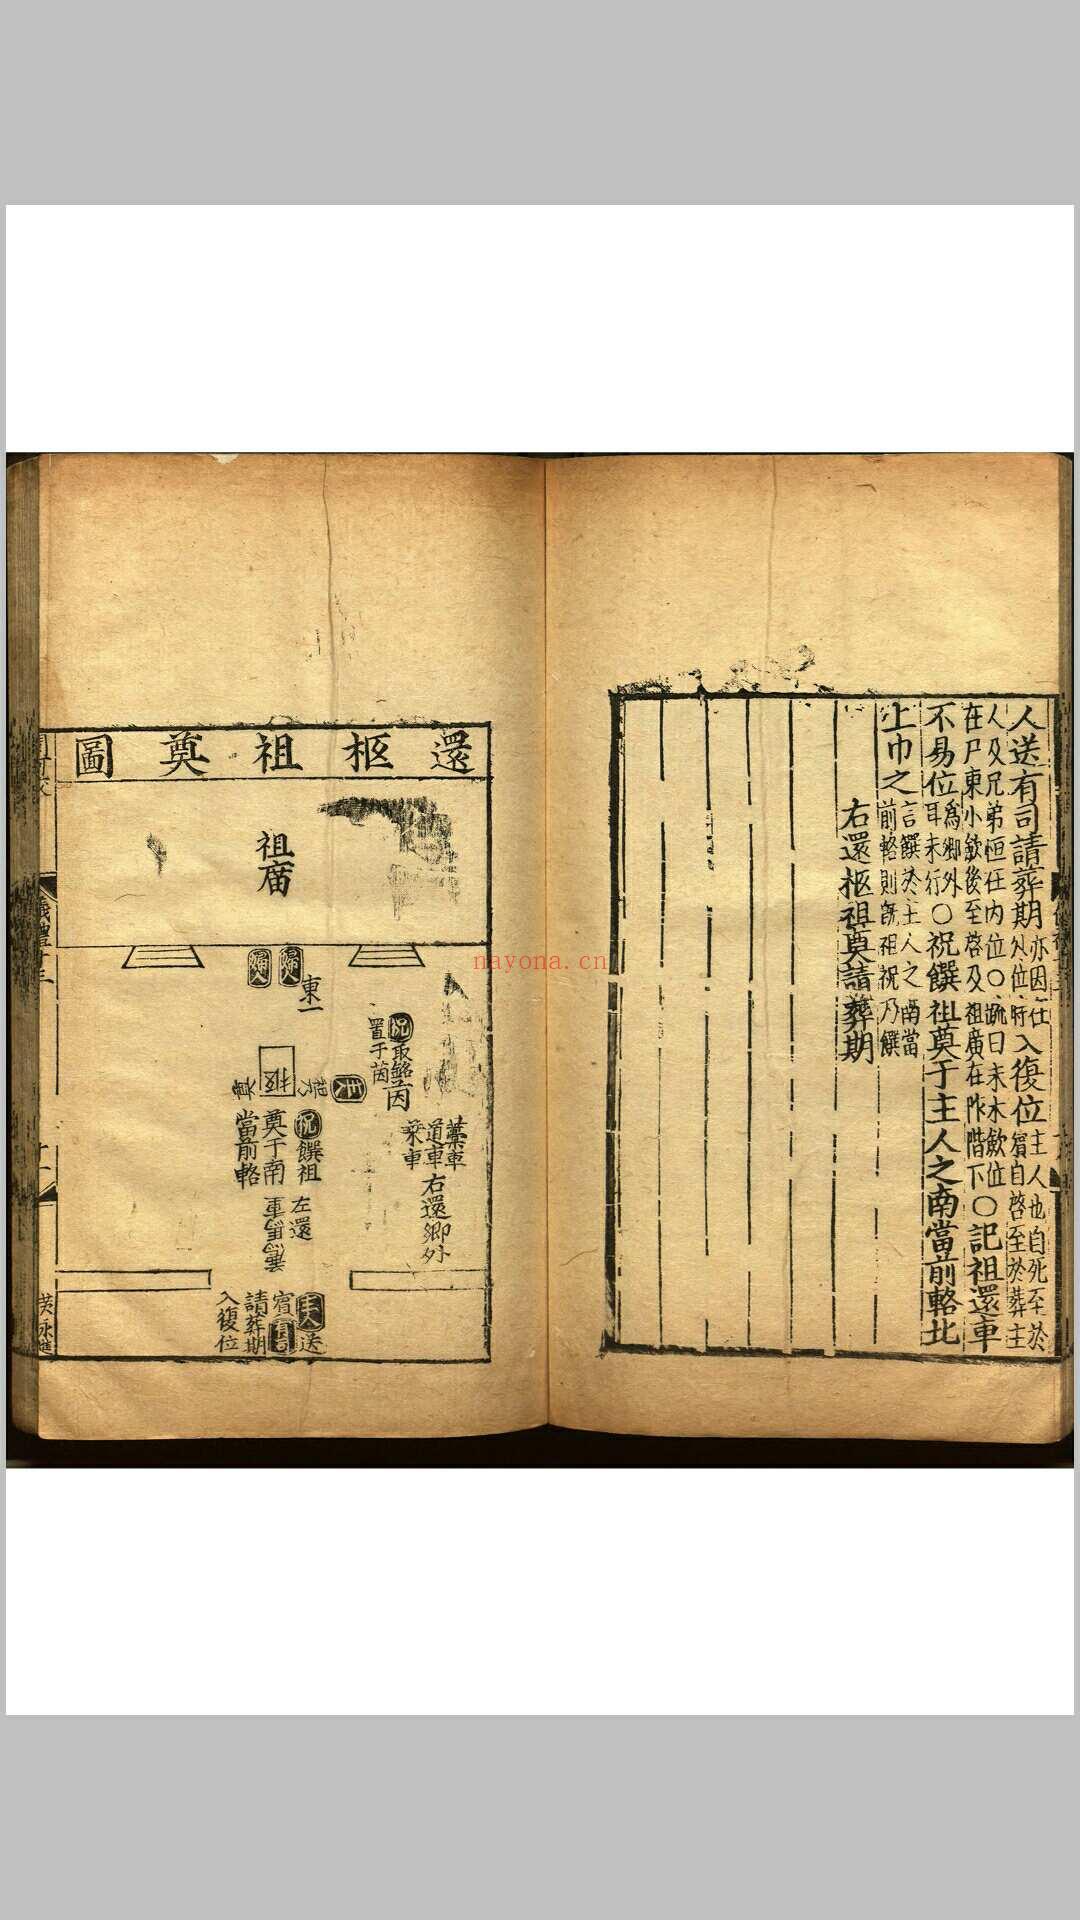 人送有司請葬期
亦因在
外位時
入復位
主人也自死至於
殯自啓至於葬主
人及兄弟恒在内位○疏曰未小斂位
在尸東小斂後至啓及祖廣在阼階下
○記祖還車
不易位
爲鄉外
耳未行
○祝饌祖奠于主人之南當前輅北
上巾之
言饌於主人之南當
前輅則旣祖祝乃饌
右還柩祖奠請葬期
還柩祖奠圖
祖廟
婦人
婦人
東
祝取銘
置于茵
茵
主人
柩
祝饌祖
奠于南
當前輅
左還
藁車
道車
乘車
右還鄉外
主人送
賓
有司
請葬期
入復位
儀禮十三
nayona.cn